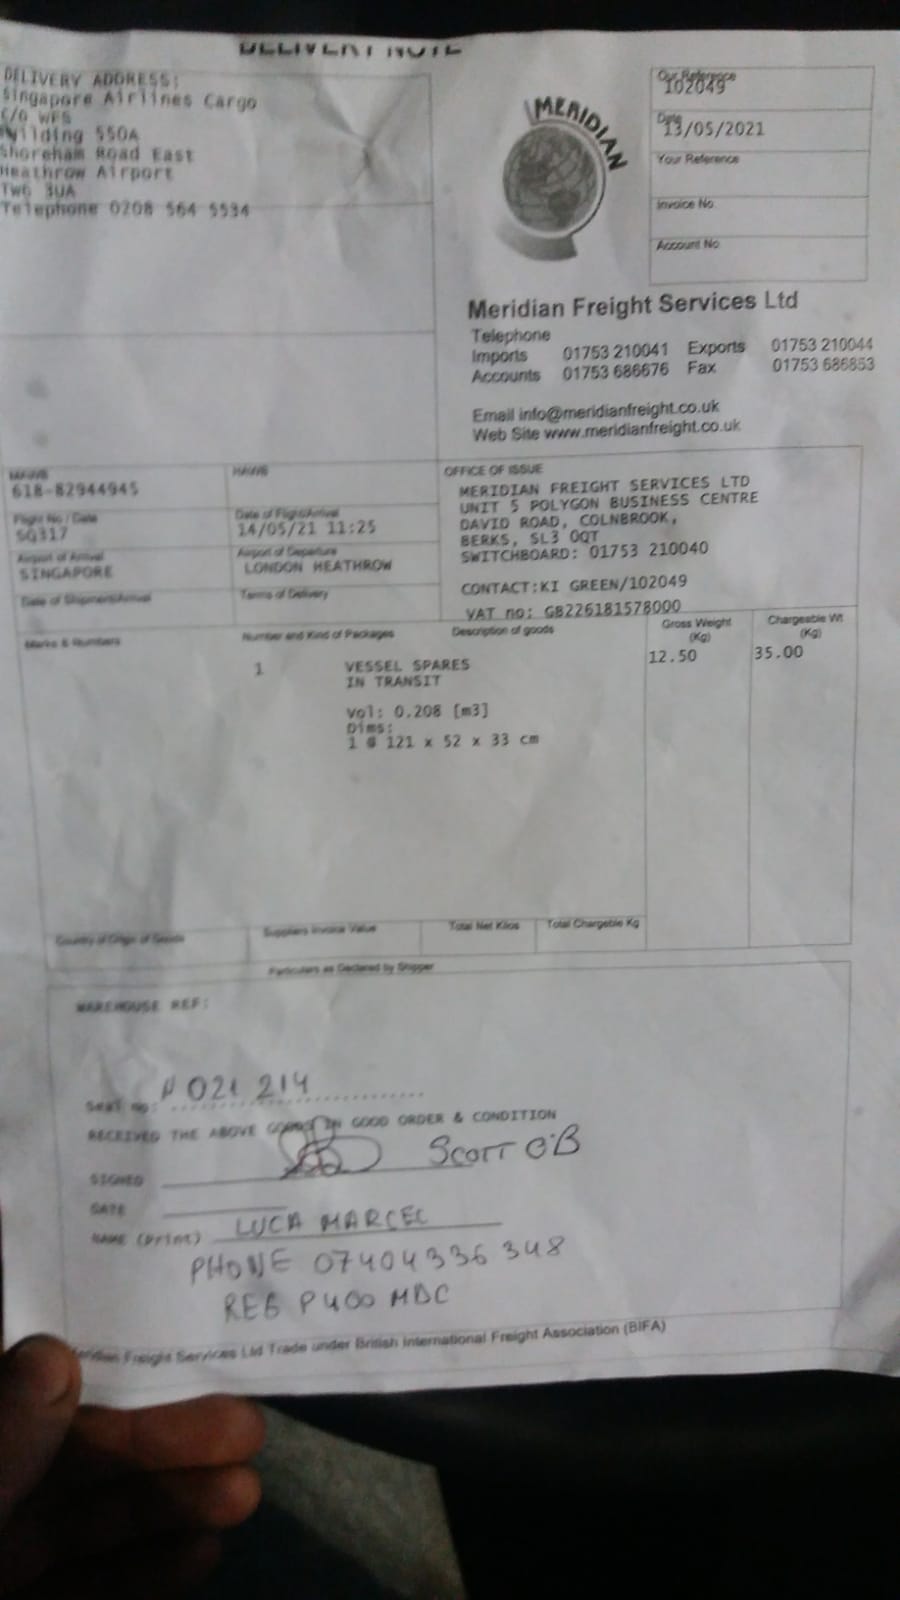 DELIVERY NOTE
DELIVERY ADDRESS:
Singapore Airlines Cargo
C/O WFS
Building 550A
Shoreham Road East
Heathrow Airport
TW6 3UA
Telephone 0208 564 5534
MERIDIAN
Our Reference
102049
Date
13/05/2021
Your Reference
Invoice No
Account No
Meridian Freight Services Ltd
Telephone
Imports 01753 210041 Exports 01753 210044
Accounts 01753 686676 Fax 01753 686853
Email info@meridianfreight.co.uk
Web Site www.meridianfreight.co.uk
MAWB
618-82944945
HAWB
Flight No / Date
SQ317
Date of Flight/Arrival
14/05/21 11:25
Airport of Arrival
SINGAPORE
Airport of Departure
LONDON HEATHROW
Date of Shipment/Arrival
Terms of Delivery
OFFICE OF ISSUE
MERIDIAN FREIGHT SERVICES LTD
UNIT 5 POLYGON BUSINESS CENTRE
DAVID ROAD, COLNBROOK,
BERKS, SL3 0QT
SWITCHBOARD: 01753 210040
CONTACT:KI GREEN/102049
VAT no: GB226181578000
Marks & Numbers
Number and Kind of Packages
Description of goods
Gross Weight (Kg)
Chargeable Wt (Kg)
1 VESSEL SPARES 12.50 35.00
IN TRANSIT
Vol: 0.208 [m3]
Dims:
1 @ 121 x 52 x 33 cm
Country of Origin of Goods
Suppliers Invoice Value
Total Net Kilos
Total Chargeble Kg
Particulars as Declared by Shipper
WAREHOUSE REF:
Seal no: 021 214
RECEIVED THE ABOVE GOODS IN GOOD ORDER & CONDITION
SIGNED SCOTT O'B
DATE
NAME (Print) LUCA MARCEL
PHONE 07404336348
REG P400 MDC
Meridian Freight Services Ltd Trade under British International Freight Association (BIFA)